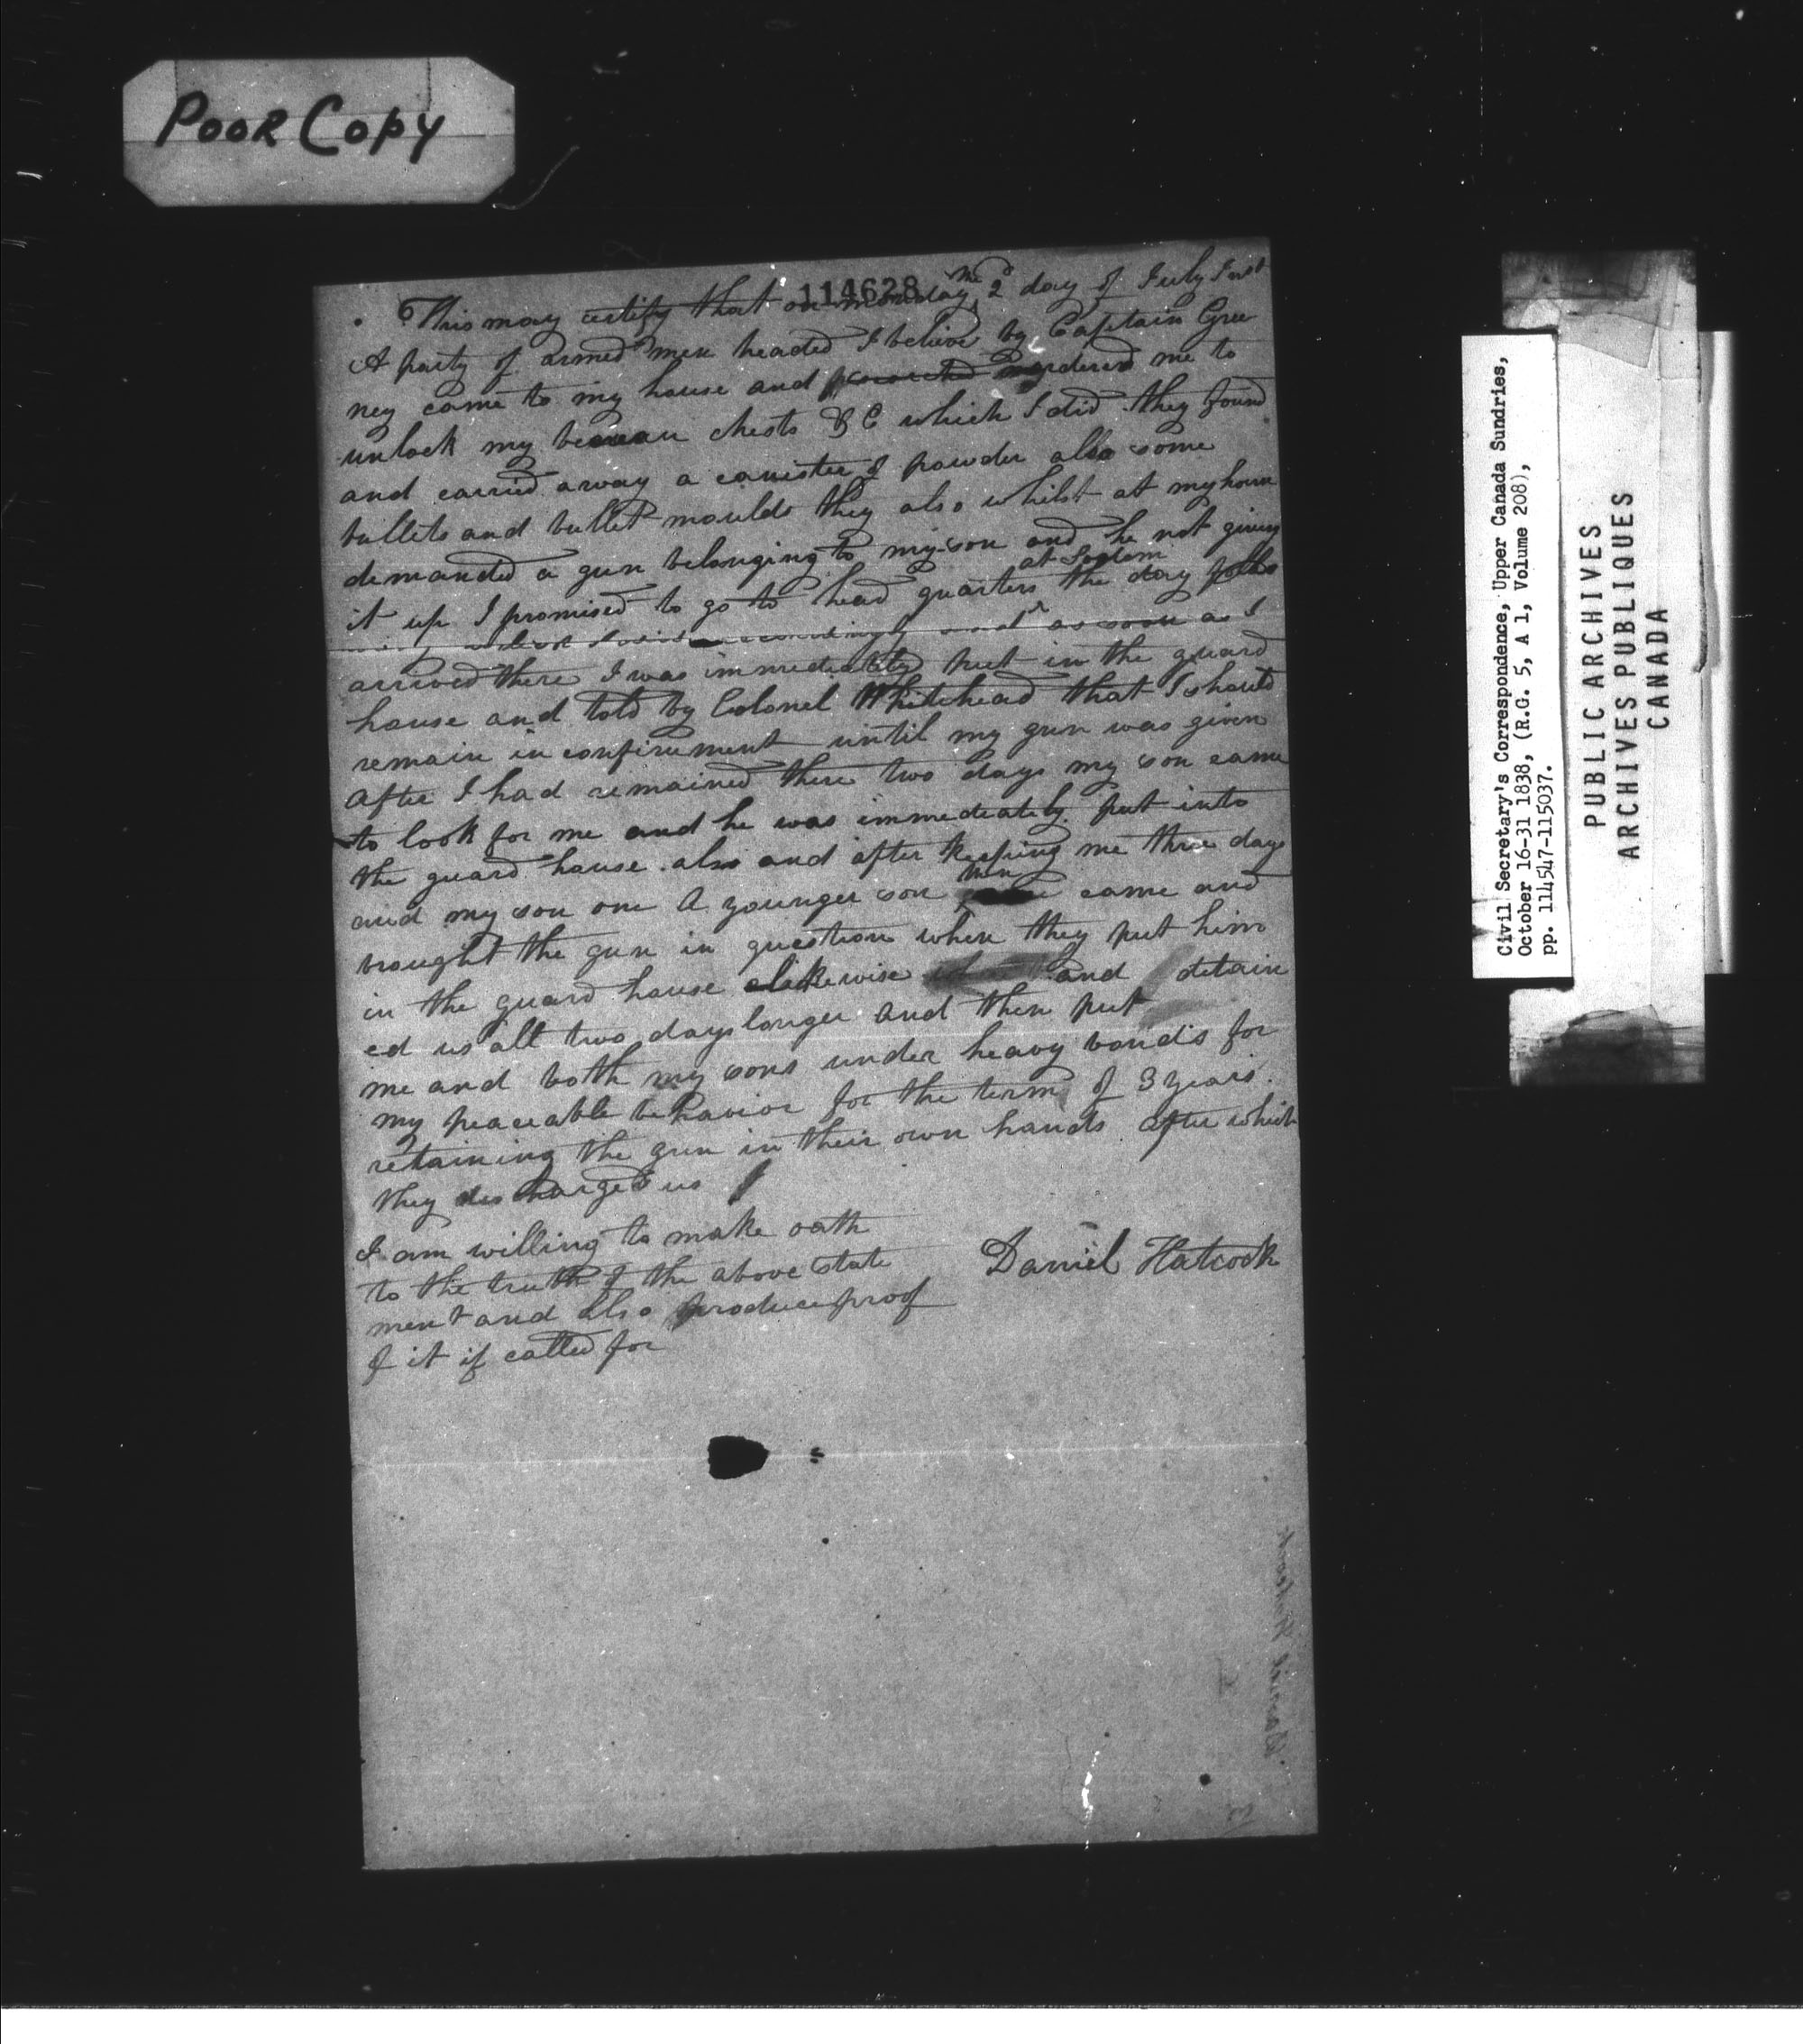 POOR COPY
114628
This may certify that on monday the 2d day of July Inst
A party of armed men headed I believe by Captain Gree
ney came to my house and ordered me to
unlock my beaureau chests & C which I did they found
and carried away a canister of powder also some
bullets and bullet moulds they also whilst at my house
demanded a gun belonging to my son and he not giving
it up I promised to go to head quarters at the day follo
wing which I did accordingly and as soon as I
arrived there I was immediately put in the guard
house and told by Colonel Whitehead that I should
remain in confinement until my gun was given
After I had remained there two days my son came
to look for me and he was immediately put into
the guard house also and after keeping me three days
and my son one A younger son then came and
brought the gun in question when they put him
in the guard house likewise and detain
ed us all two days longer and then put
me and both my sons under heavy bonds for
my peaceable behavior for the term of 3 years.
retaining the gun in their own hands after which
they discharged us
I am willing to make oath
to the truth of the above state
ment and also produce proof
of it if called for
Daniel Hatcock
Civil Secretary's Correspondence, Upper Canada Sundries,
October 16-31 1838, (R.G. 5, A 1, Volume 208),
pp. 114547-115037.
PUBLIC ARCHIVES
ARCHIVES PUBLIQUES
CANADA